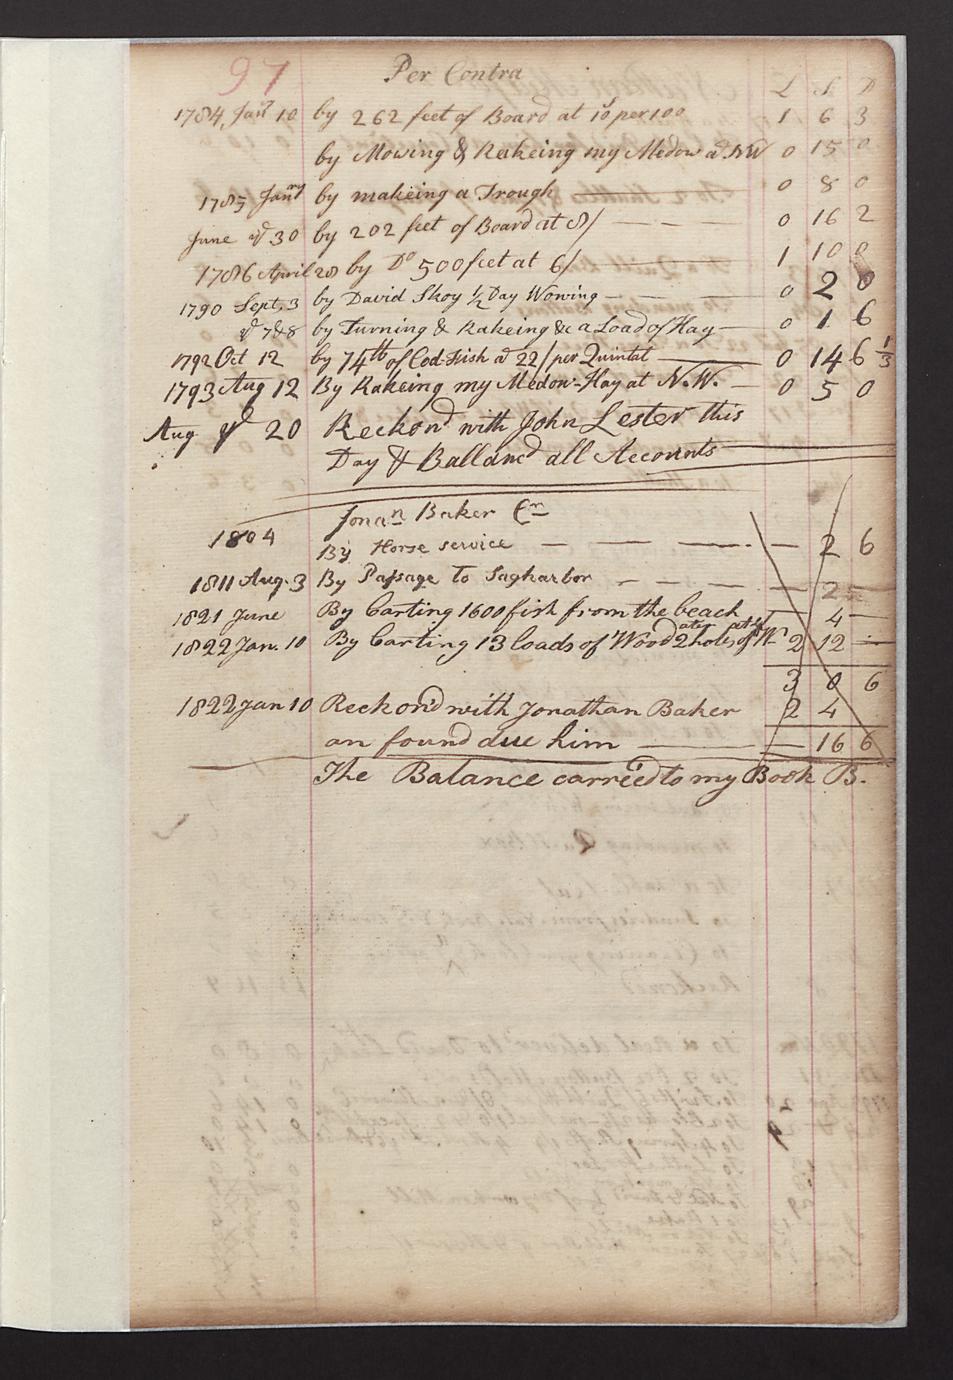 97 Per Contra £ S D
1784, Janr 10 by 262 feet of Board at 10/ per 100 1 6 3
by Mowing & Rakeing my Medow at NW 0 15 0
1785 Janry by makeing a Trough 0 8 0
June ye 30 by 202 feet of Board at 8/ 0 16 2
1786 April 28 by Do 500 feet at 6/ 1 10 0
1790 Sept. 3 by David Skoy 1/2 Day Wowing 0 2 0
ye 7&8 by Turning & Rakeing &c a Load of Hay 0 1 6
1792 Oct 12 by 74tb of Cod-Fish at 22/ per Quintal 0 14 6 1/3
1793 Aug 12 By Rakeing my Medow-Hay at N.W. 0 5 0
Aug ye 20 Reckond with John Lester this
Day & Ballancd all Accounts
Jonan Baker Cr
1804
By Horse service — 2 6
1811 Aug. 3 By Passage to Sagharbor — 2 —
1821 June By Carting 1600 fish from the beach — 4 —
1822 Jan. 10 By Carting 13 loads of Wood 2 holes of W 2 12 —
3 0 6
1822 Jan 10 Reckon'd with Jonathan Baker 2 4
an found due him — 16 6
The Balance carried to my Book B.